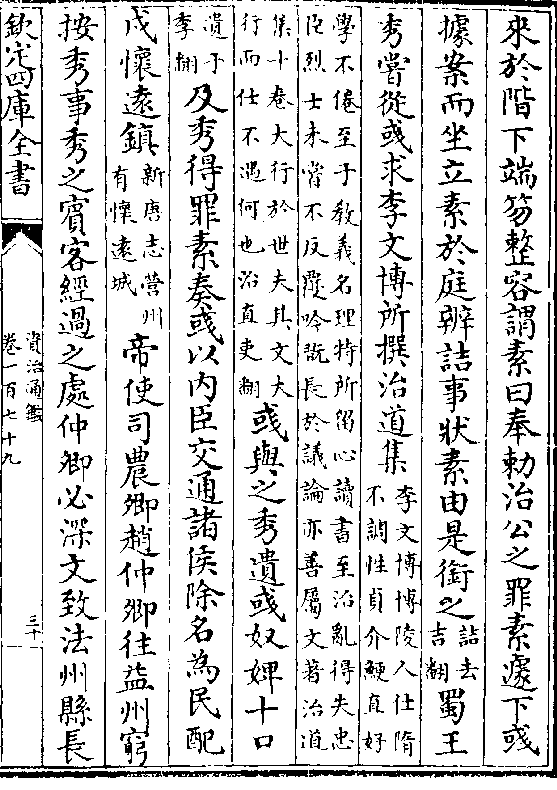 來於階下端笏整容謂素曰奉勅治公之罪素遽下彧
據案而坐立素於庭辨詰事狀素由是銜之
詰去
吉翻
蜀王
秀嘗從彧求李文博所撰治道集
李文博博陵人仕隋
不調性貞介鯁直好
學不倦至于敎義名理特所留心讀書至治亂得失忠
臣烈士未嘗不反覆吟翫長於議論亦善屬文著治道
集十卷大行於世夫其文大
行而仕不遇何也治直吏翻
彧與之秀遺彧奴婢十口
遺于
季翻
及秀得罪素奏彧以内臣交通諸侯除名為民配
戍懷遠鎮
新唐志營州
有懷遠城
帝使司農卿趙仲卿往益州窮
按秀事秀之賓客經過之處仲卿必深文致法州縣長
欽定四庫全書
資治通鑑
卷一百七十九
三十